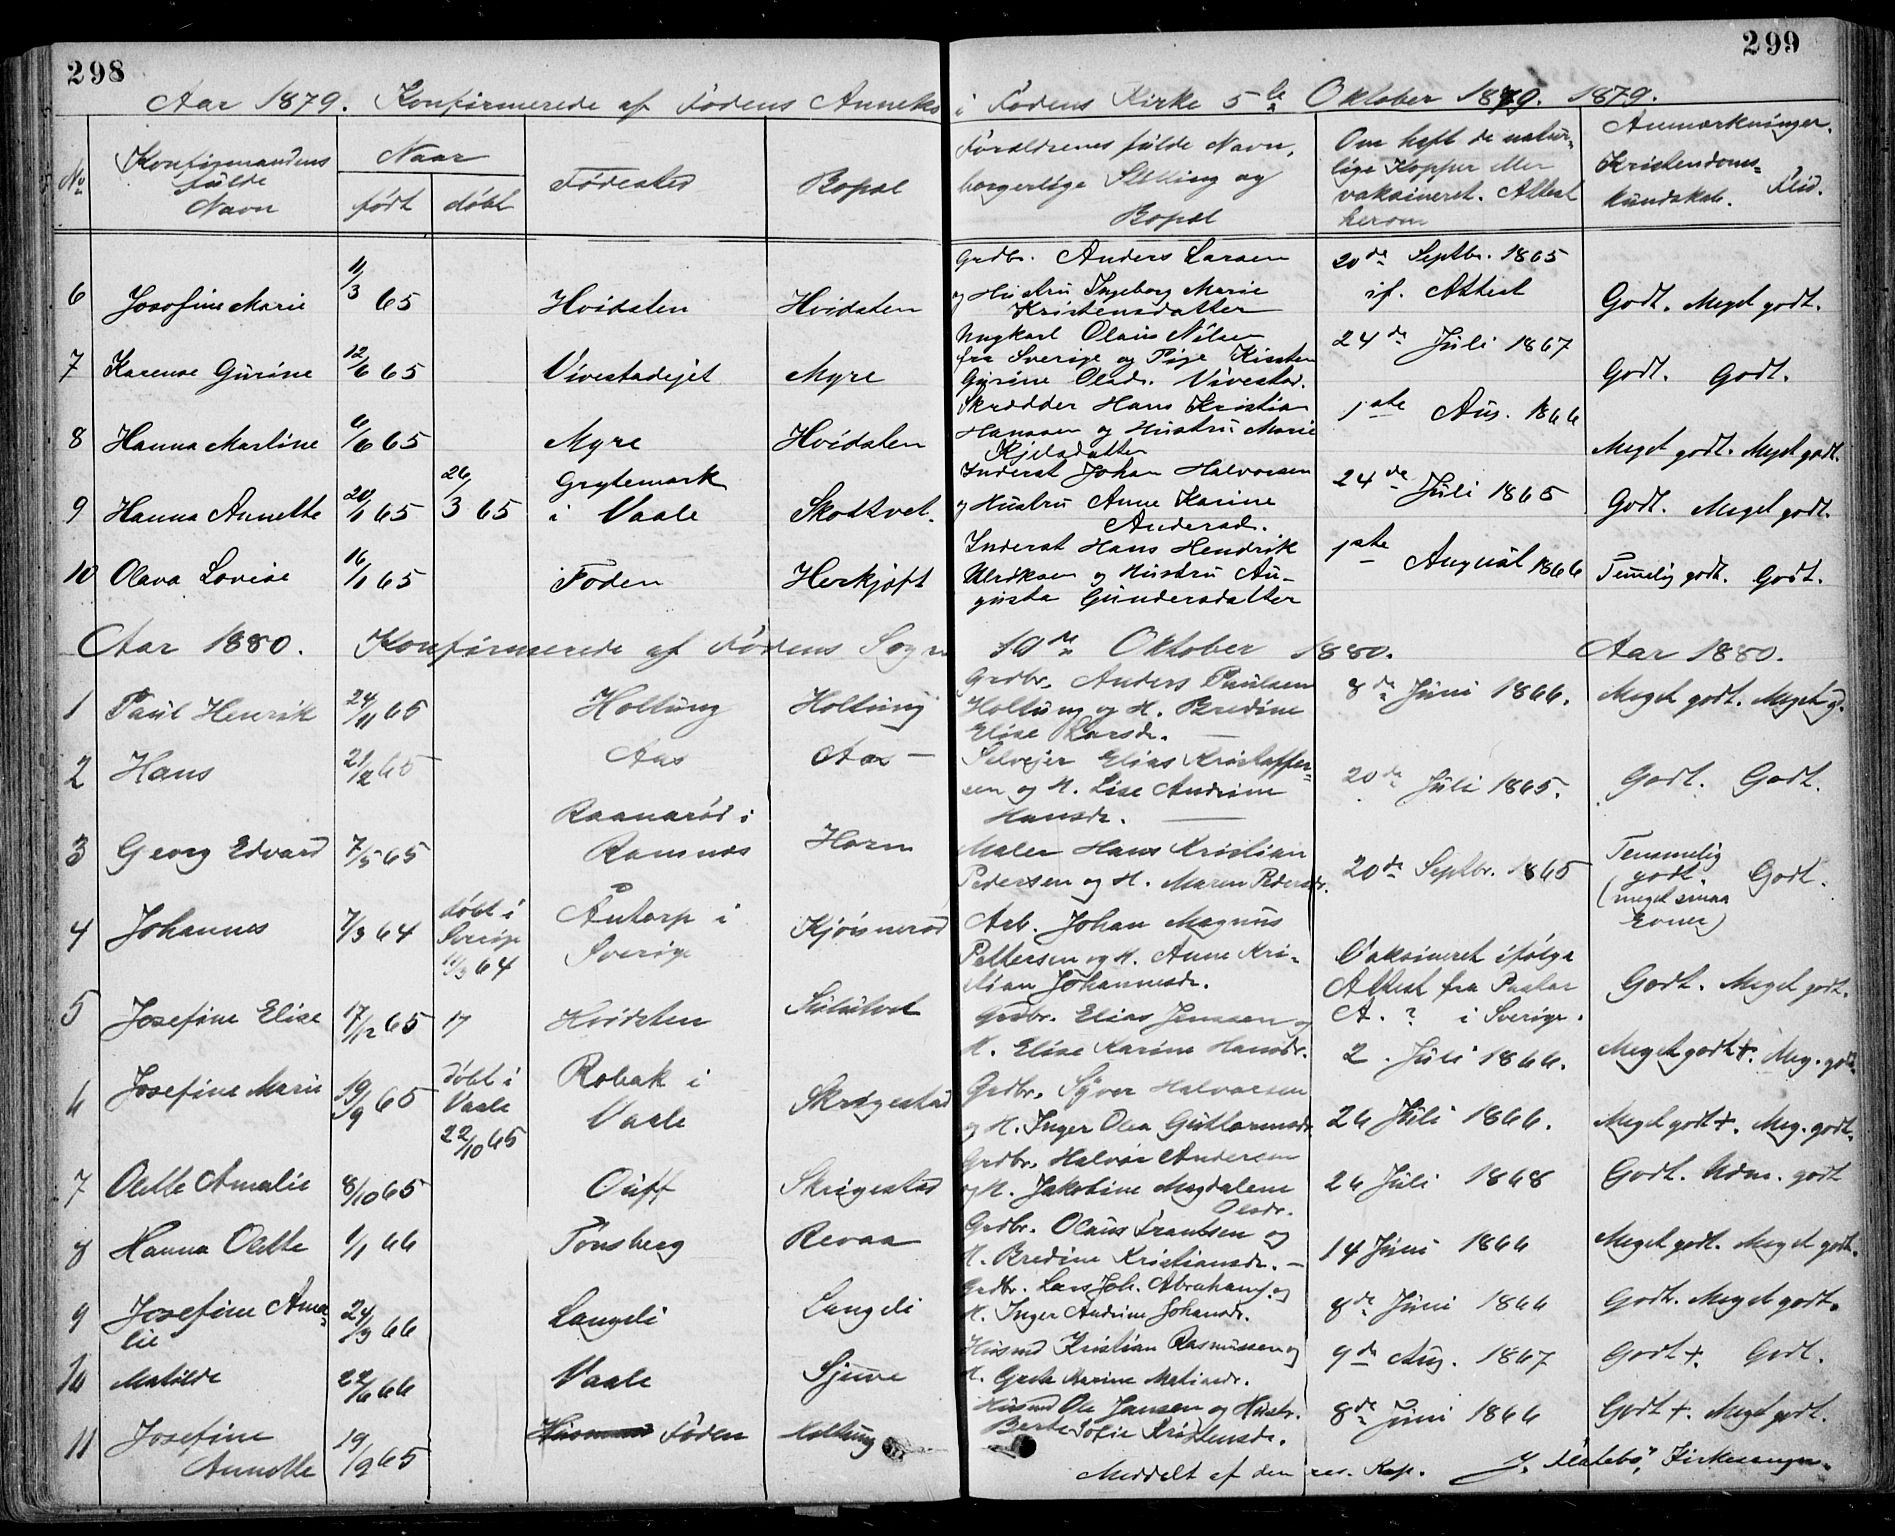 298
299
Aar 1879. Konfirmerede af Fødens Anneks i Fødens Kirke 5te Oktober 1879. 1879.
No
Konfirmandens fulde Navn
Naar
født
døbt
Fødested
Bopæl
Forældrenes fulde Navn, borgerlige Stilling og Bopæl
Om haft de naturlige Kopper eller vaksineret. Attest herom
Anmærkninger. Kristendomskundskab. Flid.
6 Josefine Marie 11/3 65 Hvidsten Hvidsten Grdbr. Anders Larsen og Hustru Ingeborg Marie Kristensdatter 20de Septbr. 1865 if. Attest Godt. Meget godt.
7 Karense Gurine 12/6 65 Vivestadejet Myre Ungkarl Olaus Nilsen fra Sverige og Pige Kirsten Gurine Olsd. Vivestad. 24de Juli 1867 Godt. Godt.
8 Hanna Martine 6/6 65 Myre Hvidsten Skrædder Hans Kristian Hansen og Hustru Marie Kjelsdatter 1ste Aug. 1866 Meget godt. Meget godt.
9 Hanna Annette 20/1 65 26/3 65 Grytemark i Vaale Skottvet. Inderst Johan Halvorsen og Hustru Anne Karine Andersd. 24de Juli 1865 Godt. Meget godt.
10 Olava Lovise 16/1 65 Foden Herkjøft Inderst Hans Hendrik Ulriksen og Hustru Augusta Gundersdatter 1ste August 1866 Temmelig godt. Godt.
Aar 1880. Konfirmerede af Fødens Sogn 10de Oktober 1880. Aar 1880.
1 Paul Henrik 24/11 65 Holtung Holtung Grdbr. Anders Paulsen Holtung og H. Bredine Elise Larsdr. — 8de Juni 1866. Meget godt. Meget g.
2 Hans 21/12 65 Aas Aas — Selvejer Elias Kristoffersen og H. Lise Andrine Hansdr. — 20de Juli 1865. Godt. Godt.
3 Georg Edvard 7/5 65 Raanarød i Ramnæs Horn Maler Hans Kristian Pedersen og H. Maren Pedersdr. 20de Septbr. 1865 Temmelig godt (meget smaa Evner) Godt.
4 Johannes 7/3 64 døbt i Sverige 11/3 64 Antorp i Sverige Kjønnerød Arb. Johan Magnus Pettersen og H. Anne Kristian Johannesdr. Vaksineret ifølge Attest fra Pastor A. ? i Sverige. Godt. Meget godt.
5 Josefine Elise 17/12 65 17 Hvidsten Grdbr. Elias Jensen og H. Elise Karine Hansdr. 2. Juli 1866. Meget godt +. Meg. godt.
6 Josefine Marie 19/9 65 døbt i Vaale 22/10 65 Robak i Vaale Skrigestad Grdbr. Syver Halvorsen og H. Inger Olea Guttormsdr. 26 Juli 1866. Meget godt +. Meg. godt.
7 Olette Amalie 8/10 65 Ouff Skrigestad Grdbr. Halvor Andersen og H. Jakobine Magdalene Olsdr. 26 Juli 1868 Godt. Udm. godt
8 Hanna Olette 1/1 66 Tønsberg Revaa Grdbr. Olaus Frantsen og H. Bredine Kristiansdr. — 14 Juni 1866 Meget godt. Meget godt.
9 Josefine Amalie 24/3 66 Langeli Langeli Grdbr. Lars Joh. Abrahams. og H. Inger Andrine Johansdr. 8de Juni 1866 Godt. Meget godt.
10 Matilde 22/6 66 Vaale Gjuve Husmd Kristian Rasmussen og H. Grete Karine Matiasdr. 9de Aug. 1867 Godt +. Godt.
11 Josefine Annette 19/9 65 Føden Holtung Husmd Ole Jansen og Hustr. Berte Sofie Kristensdr. 8de Juni 1866 Godt +. Meget godt.
Meddelt af den res. Kap. J. Flatebø, Kirkesanger.